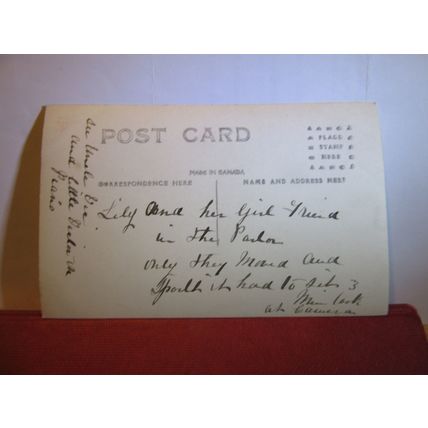 POST CARD
PLACE
STAMP
HERE
MADE IN CANADA
CORRESPONDENCE HERE
NAME AND ADDRESS HERE
Lily and her Girl Friend
in the Parlor
only they Moved and
Spoilt it had to sit 3
Min Look
at Camera
see Uncle Vic
and little Victor in
Piano